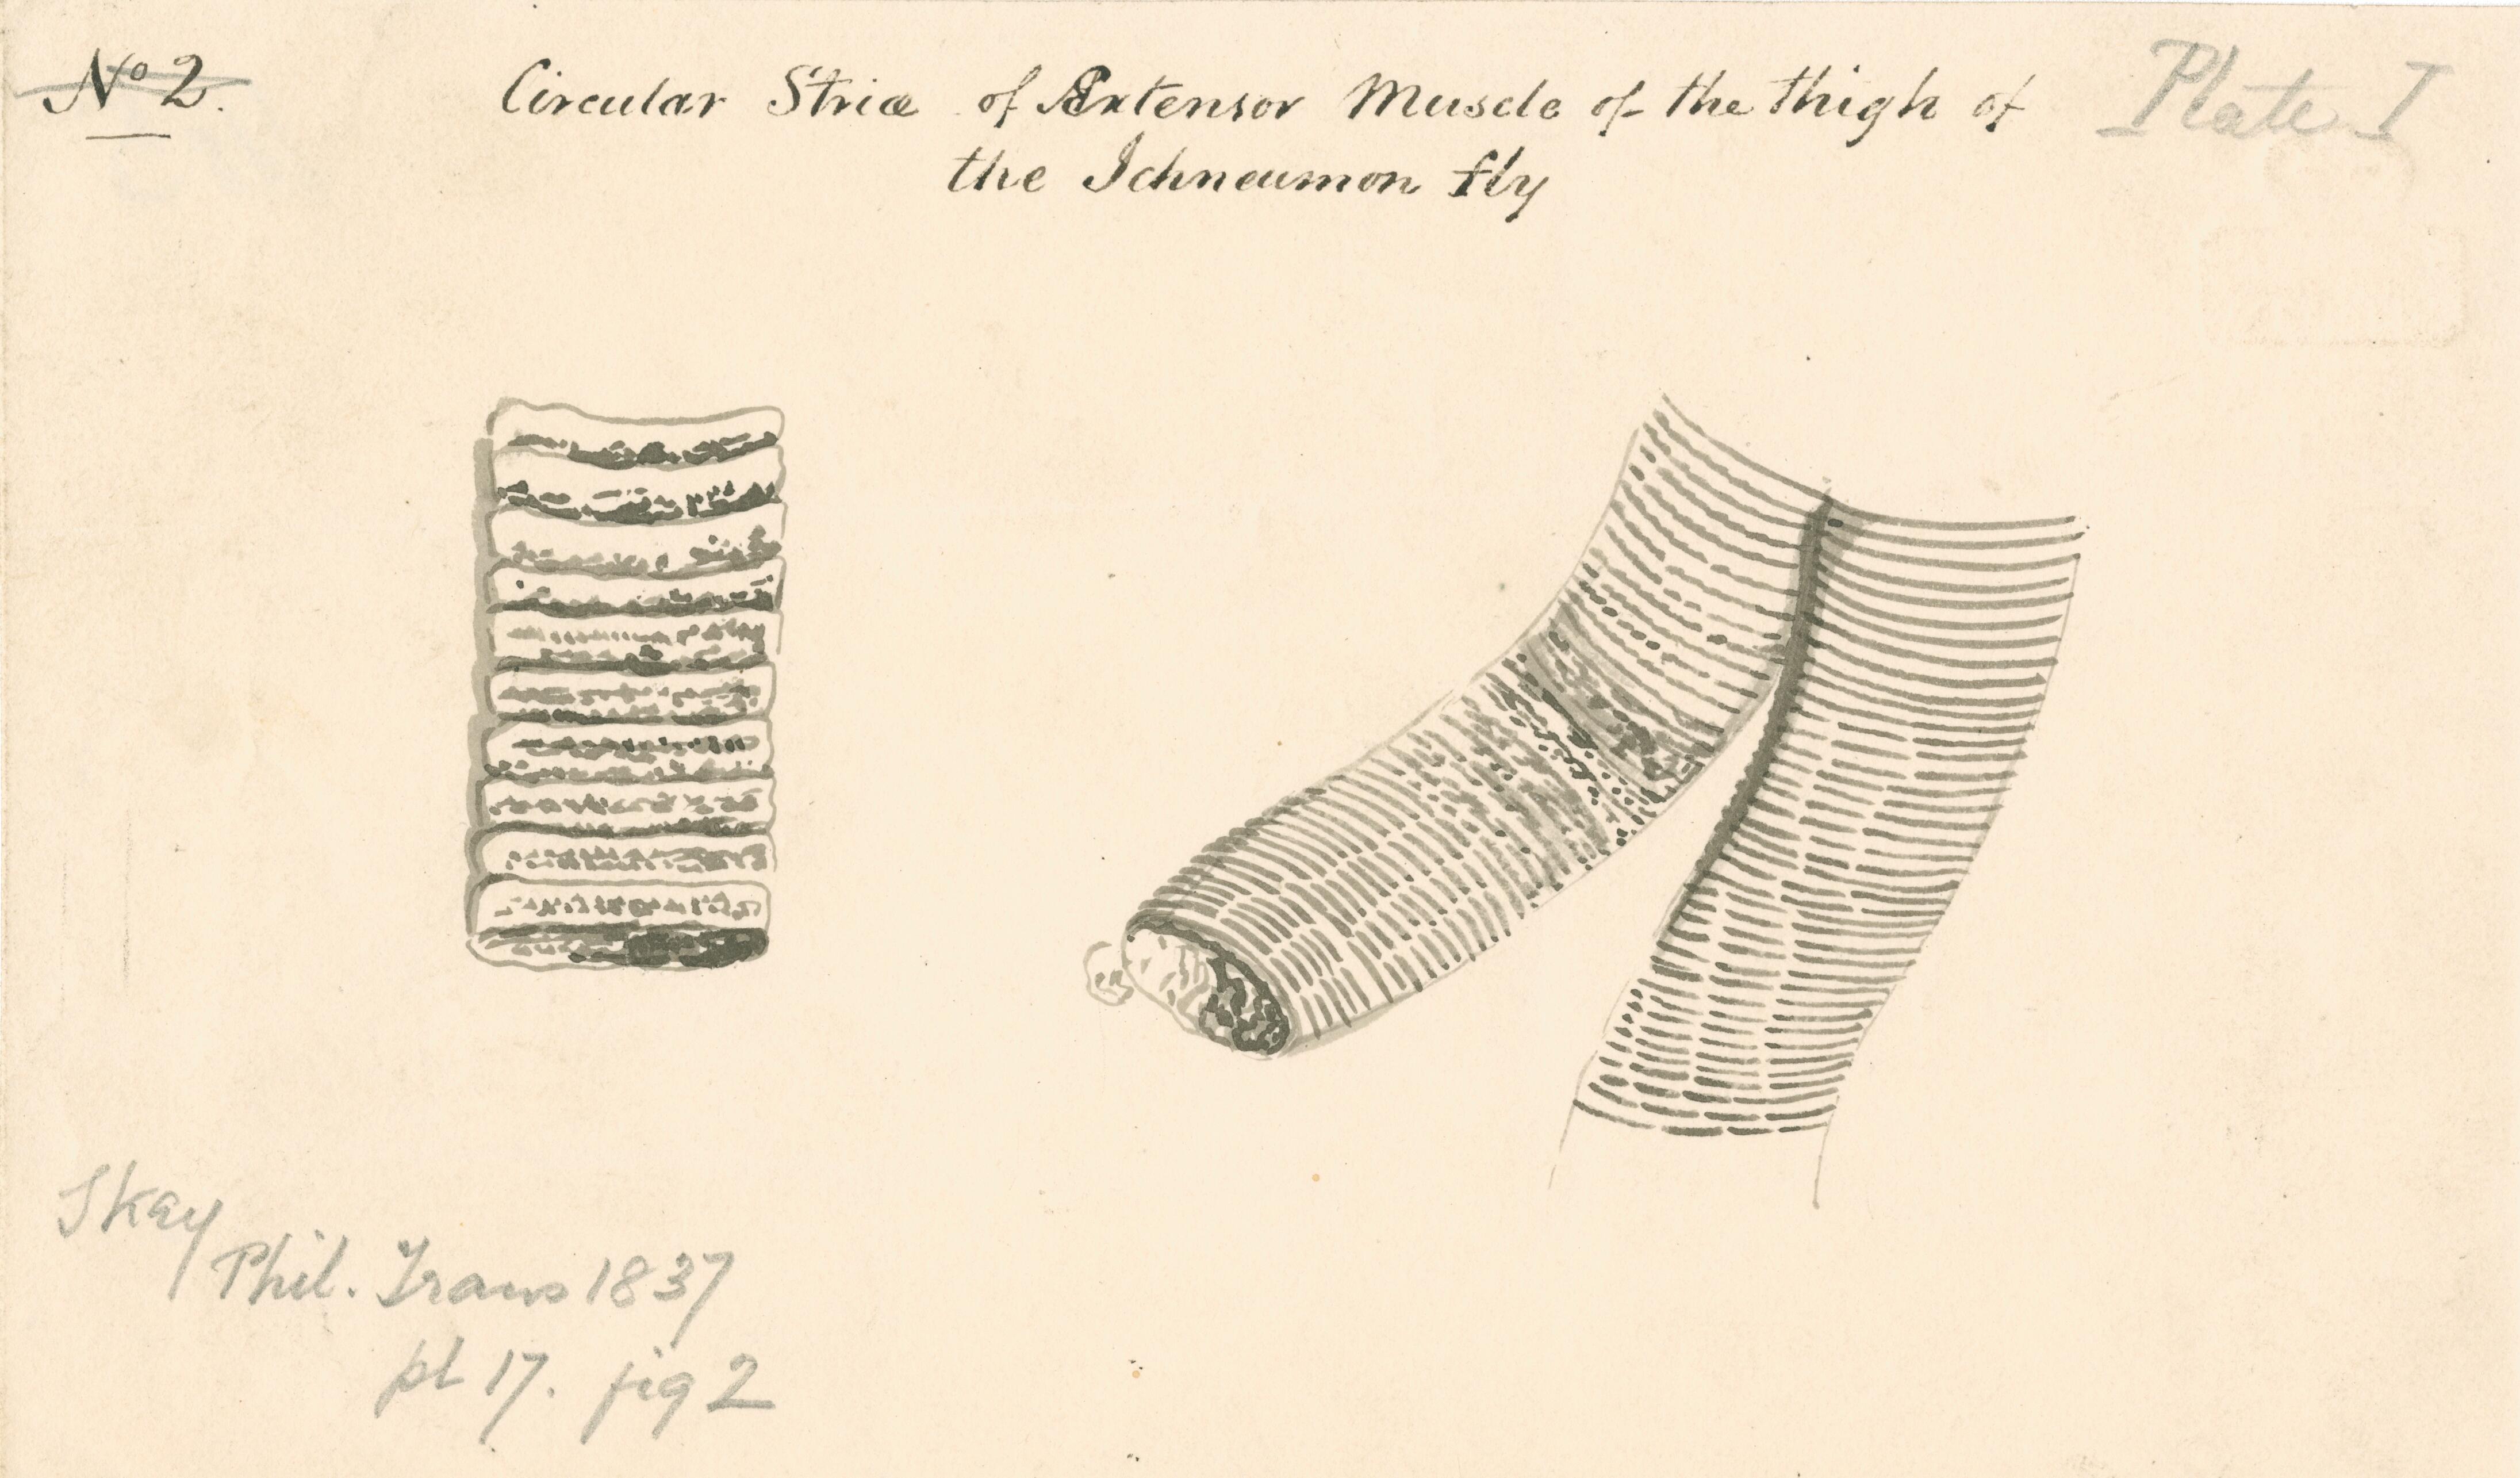 No 2.
Circular Striæ of Extensor Muscle of the thigh of
the Ichneumon fly
Plate I
Skey
Phil. Trans 1837
pl 17. fig 2